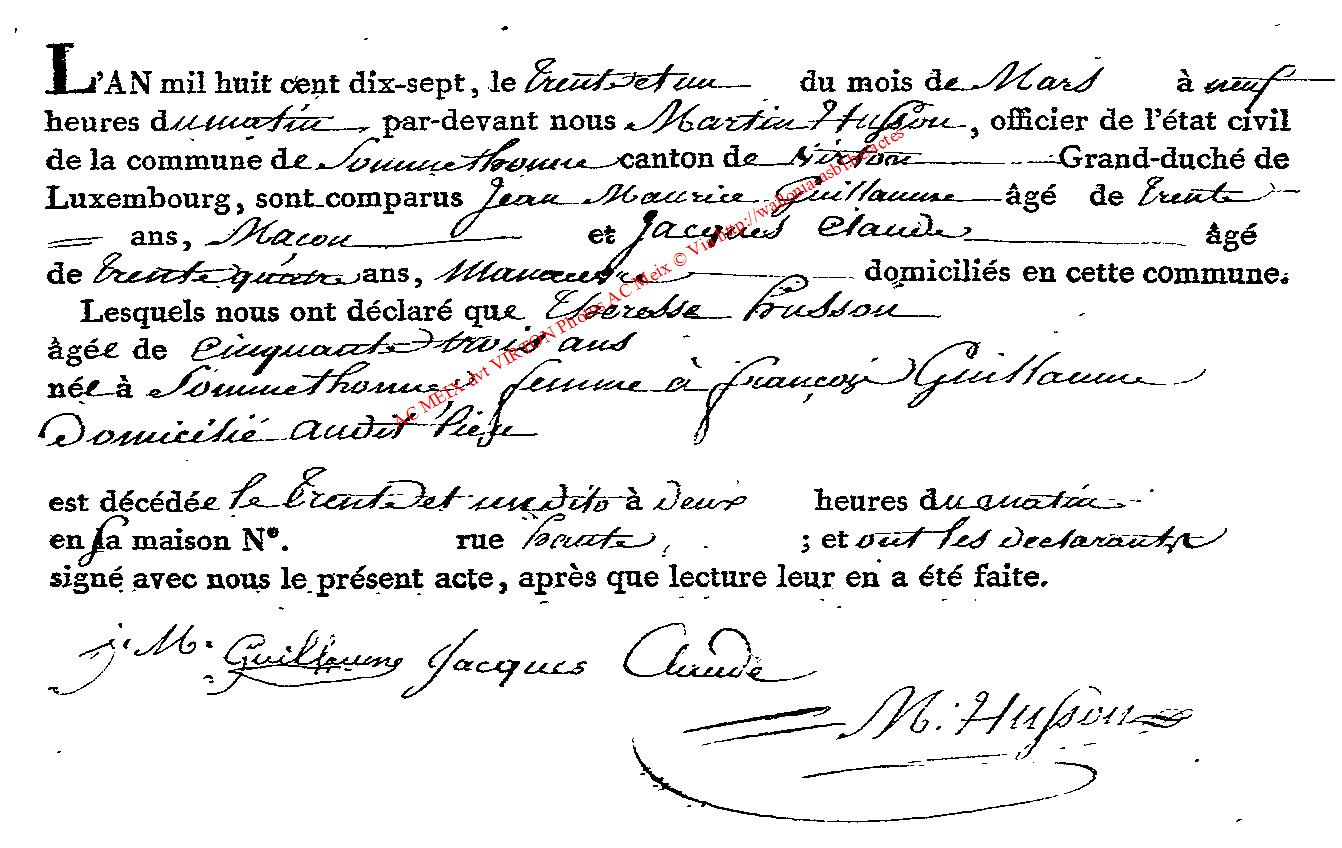 L'AN mil huit cent dix-sept, le trente et un du mois de Mars à neuf
heures du matin, par-devant nous Martin Husson, officier de l'état civil
de la commune de Sommethonne canton de Virton Grand-duché de
Luxembourg, sont comparus Jean Maurice Guillaume âgé de trente
ans, Maçon et Jacques Claude âgé
de trente quatre ans, Manœuvre domiciliés en cette commune.
Lesquels nous ont déclaré que Theresse husson
âgée de Cinquante trois ans
née à Sommethonne, femme à françois Guillaume
Domicilié audit lieu
est décédée le trente et un dito à deux heures du matin
en sa maison N°. rue haute, ; et ont les declarants
signé avec nous le présent acte, après que lecture leur en a été faite.
j. M. Guillaume Jacques Claude
M. Husson
AC MEIX dvt VIRTON Photos AC Meix © Via http://wallonia.asbl.be/actes